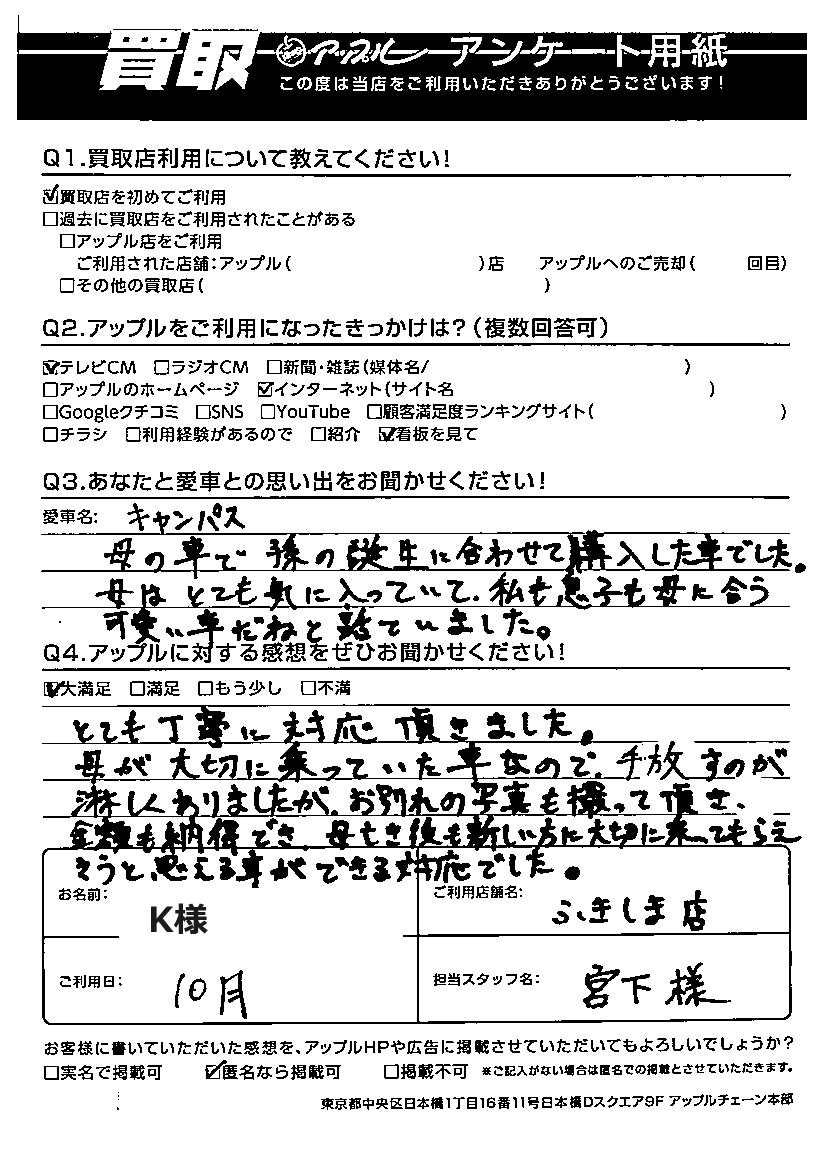 買取 アップル アンケート用紙
この度は当店をご利用いただきありがとうございます!
Q1.買取店利用について教えてください!
☑買取店を初めてご利用
□過去に買取店をご利用されたことがある
□アップル店をご利用
ご利用された店舗:アップル( )店 アップルへのご売却( 回目)
□その他の買取店( )
Q2.アップルをご利用になったきっかけは?(複数回答可)
☑テレビCM □ラジオCM □新聞・雑誌(媒体名/ )
□アップルのホームページ ☑インターネット(サイト名 )
□Googleクチコミ □SNS □YouTube □顧客満足度ランキングサイト( )
□チラシ □利用経験があるので □紹介 ☑看板を見て
Q3.あなたと愛車との思い出をお聞かせください!
愛車名: キャンバス
母の車で孫の誕生に合わせて購入した車でした。
母はとても気に入っていて、私も息子も母に合う
可愛い車だねと話ていました。
Q4.アップルに対する感想をぜひお聞かせください!
☑大満足 □満足 □もう少し □不満
とても丁寧に対応頂きました。
母が大切に乗っていた車なので、手放すのが
淋しくありましたが、お別れの写真も撮って頂き、
金額も納得でき、母も今後も新しい方に大切に乗ってもらえ
そうと思える事ができる対応でした。
お名前: K様
ご利用店舗名: ふきしま店
ご利用日: 10月
担当スタッフ名: 宮下様
お客様に書いていただいた感想を、アップルHPや広告に掲載させていただいてもよろしいでしょうか?
□実名で掲載可 ☑匿名なら掲載可 □掲載不可 ※ご記入がない場合は匿名での掲載とさせていただきます。
東京都中央区日本橋1丁目16番11号日本橋Dスクエア9F アップルチェーン本部